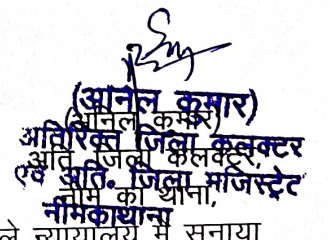 (अनिल कुमार)
(अनिल कुमार)
अतिरिक्त जिला कलक्टर
अति० जिला कलेक्टर,
एवं अति. जिला मजिस्ट्रेट
नीम का थाना,
नीमकाथाना
ले न्यायालय में सुनाया